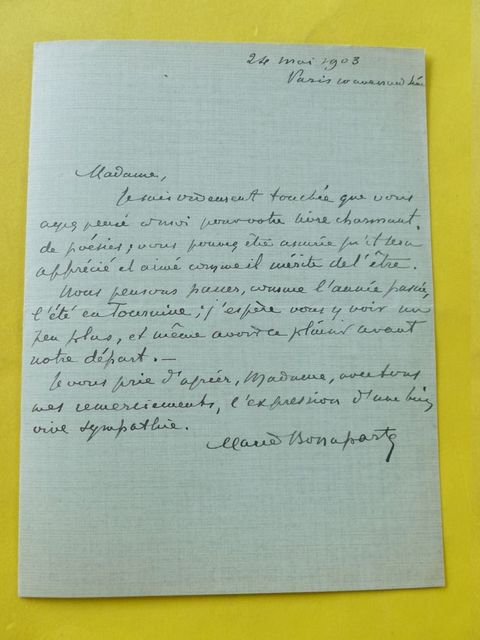 24 mai 1903
Paris
Madame,
Je suis vivement touchée que vous
ayez pensé à moi pour votre livre charmant
de poésies; vous pouvez être assurée qu'il sera
apprécié et aimé comme il mérite de l'être.
Nous pensons passer, comme l'année passée,
l'été en Touraine; j'espère vous y voir un
peu plus, et même avoir ce plaisir avant
notre départ. —
Je vous prie d'agréer, Madame, avec tous
mes remerciements, l'expression d'une bien
vive sympathie.
Marie Bonaparte